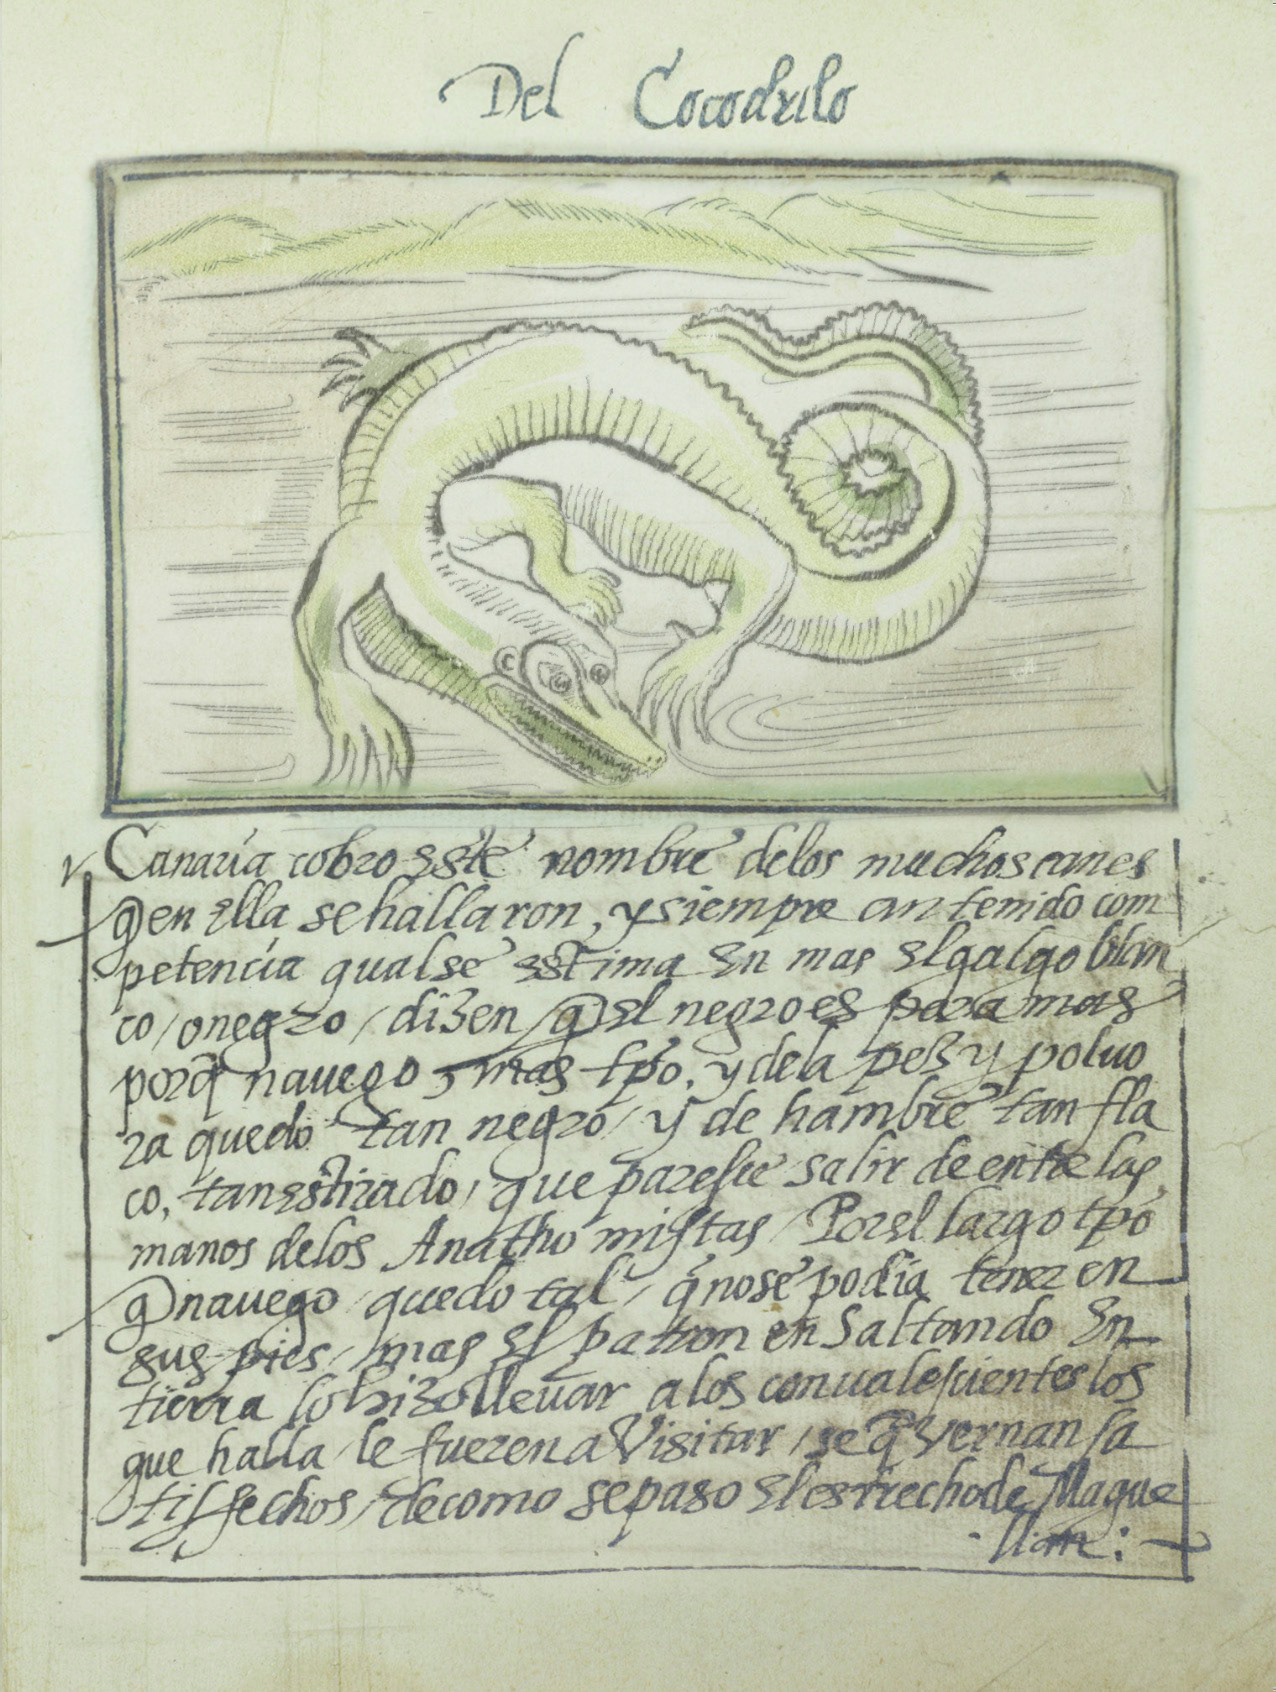 Del Cocodrilo
Canaria cobro este nombre delos muchos canes
q en ella se hallaron, y siempre an tenido com
petencia qual se estima en mas el galgo blan
co / o negro / dizen q el negro es para mas
porq̃ navego mas tpo. y dela pez y poluo
ra quedo tan negro / y de hambre tan fla
co, tan estirado, que paresce salir de entre las
manos delos Anathomistas / Por el largo tpo
q navego quedo tal / q̃ no se podia tener en
sus pies / mas el patron en saltando en
tierra lo hizo llevar a los convalescientes los
que halla le fueren a Visitar / se q̃ vernan sa
tisfechos / de como se paso el estrecho de Mague
llan :